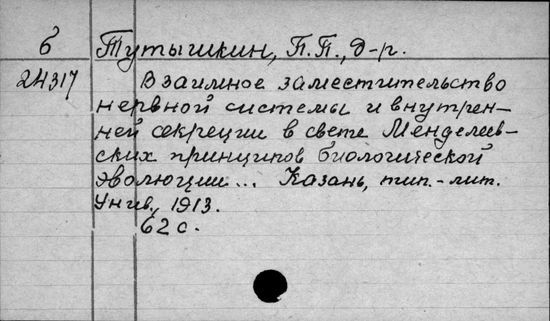 б Тутышкин, П.П., д-р.
24317 Взаимное заместительство
нервной системы и внутрен-
ней секреции в свете Менделеев-
ских принципов биологической
эволюции... Казань, тип.-лит.
Унив., 1913.
62 с.